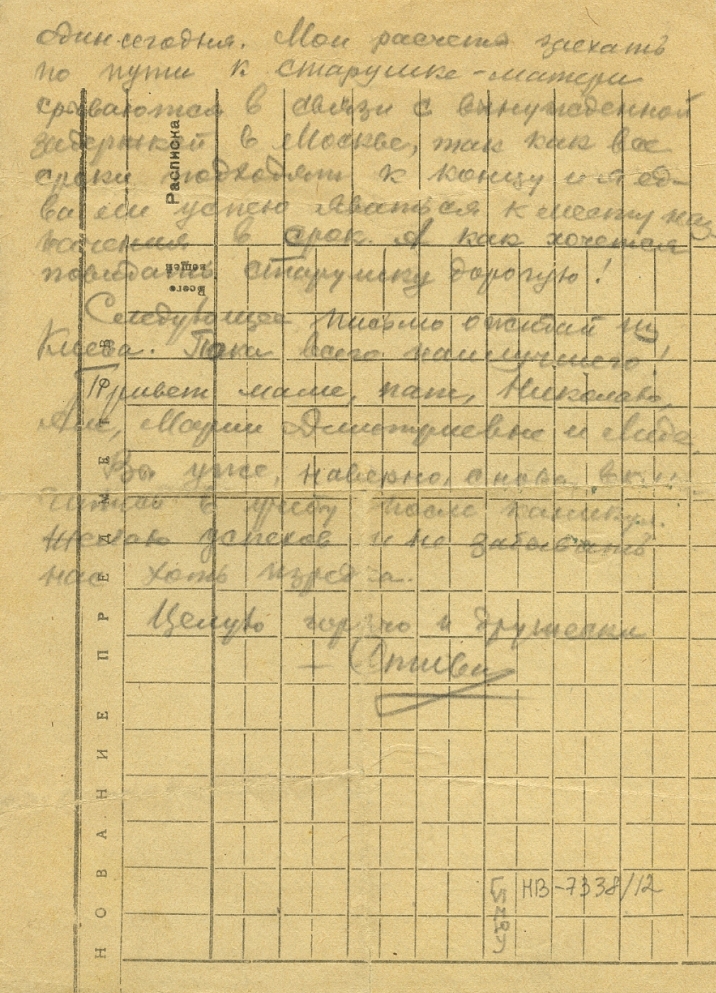 один сегодня. Мои расчеты заехать
по пути к старушке-матери
срываются в связи с вынужденной
задержкой в Москве, так как все
сроки подходят к концу и я ед-
ва ли успею явиться к месту наз-
начения в срок. А как хочется
повидать старушку дорогую!
Следующее письмо ожидай из
Киева. Пока всего наилучшего!
Привет маме, папе, Николаю,
Але, Марии Дмитриевне и Лиде.
Вы уже, наверно, снова
в учебу после каникул.
Желаю успехов и не забывать
нас хоть изредка.
Целую горячо и дружески
—
Расписка
Всего вещей
НОВАНИЕ ПРЕДМЕТОВ
НВ-7338/12